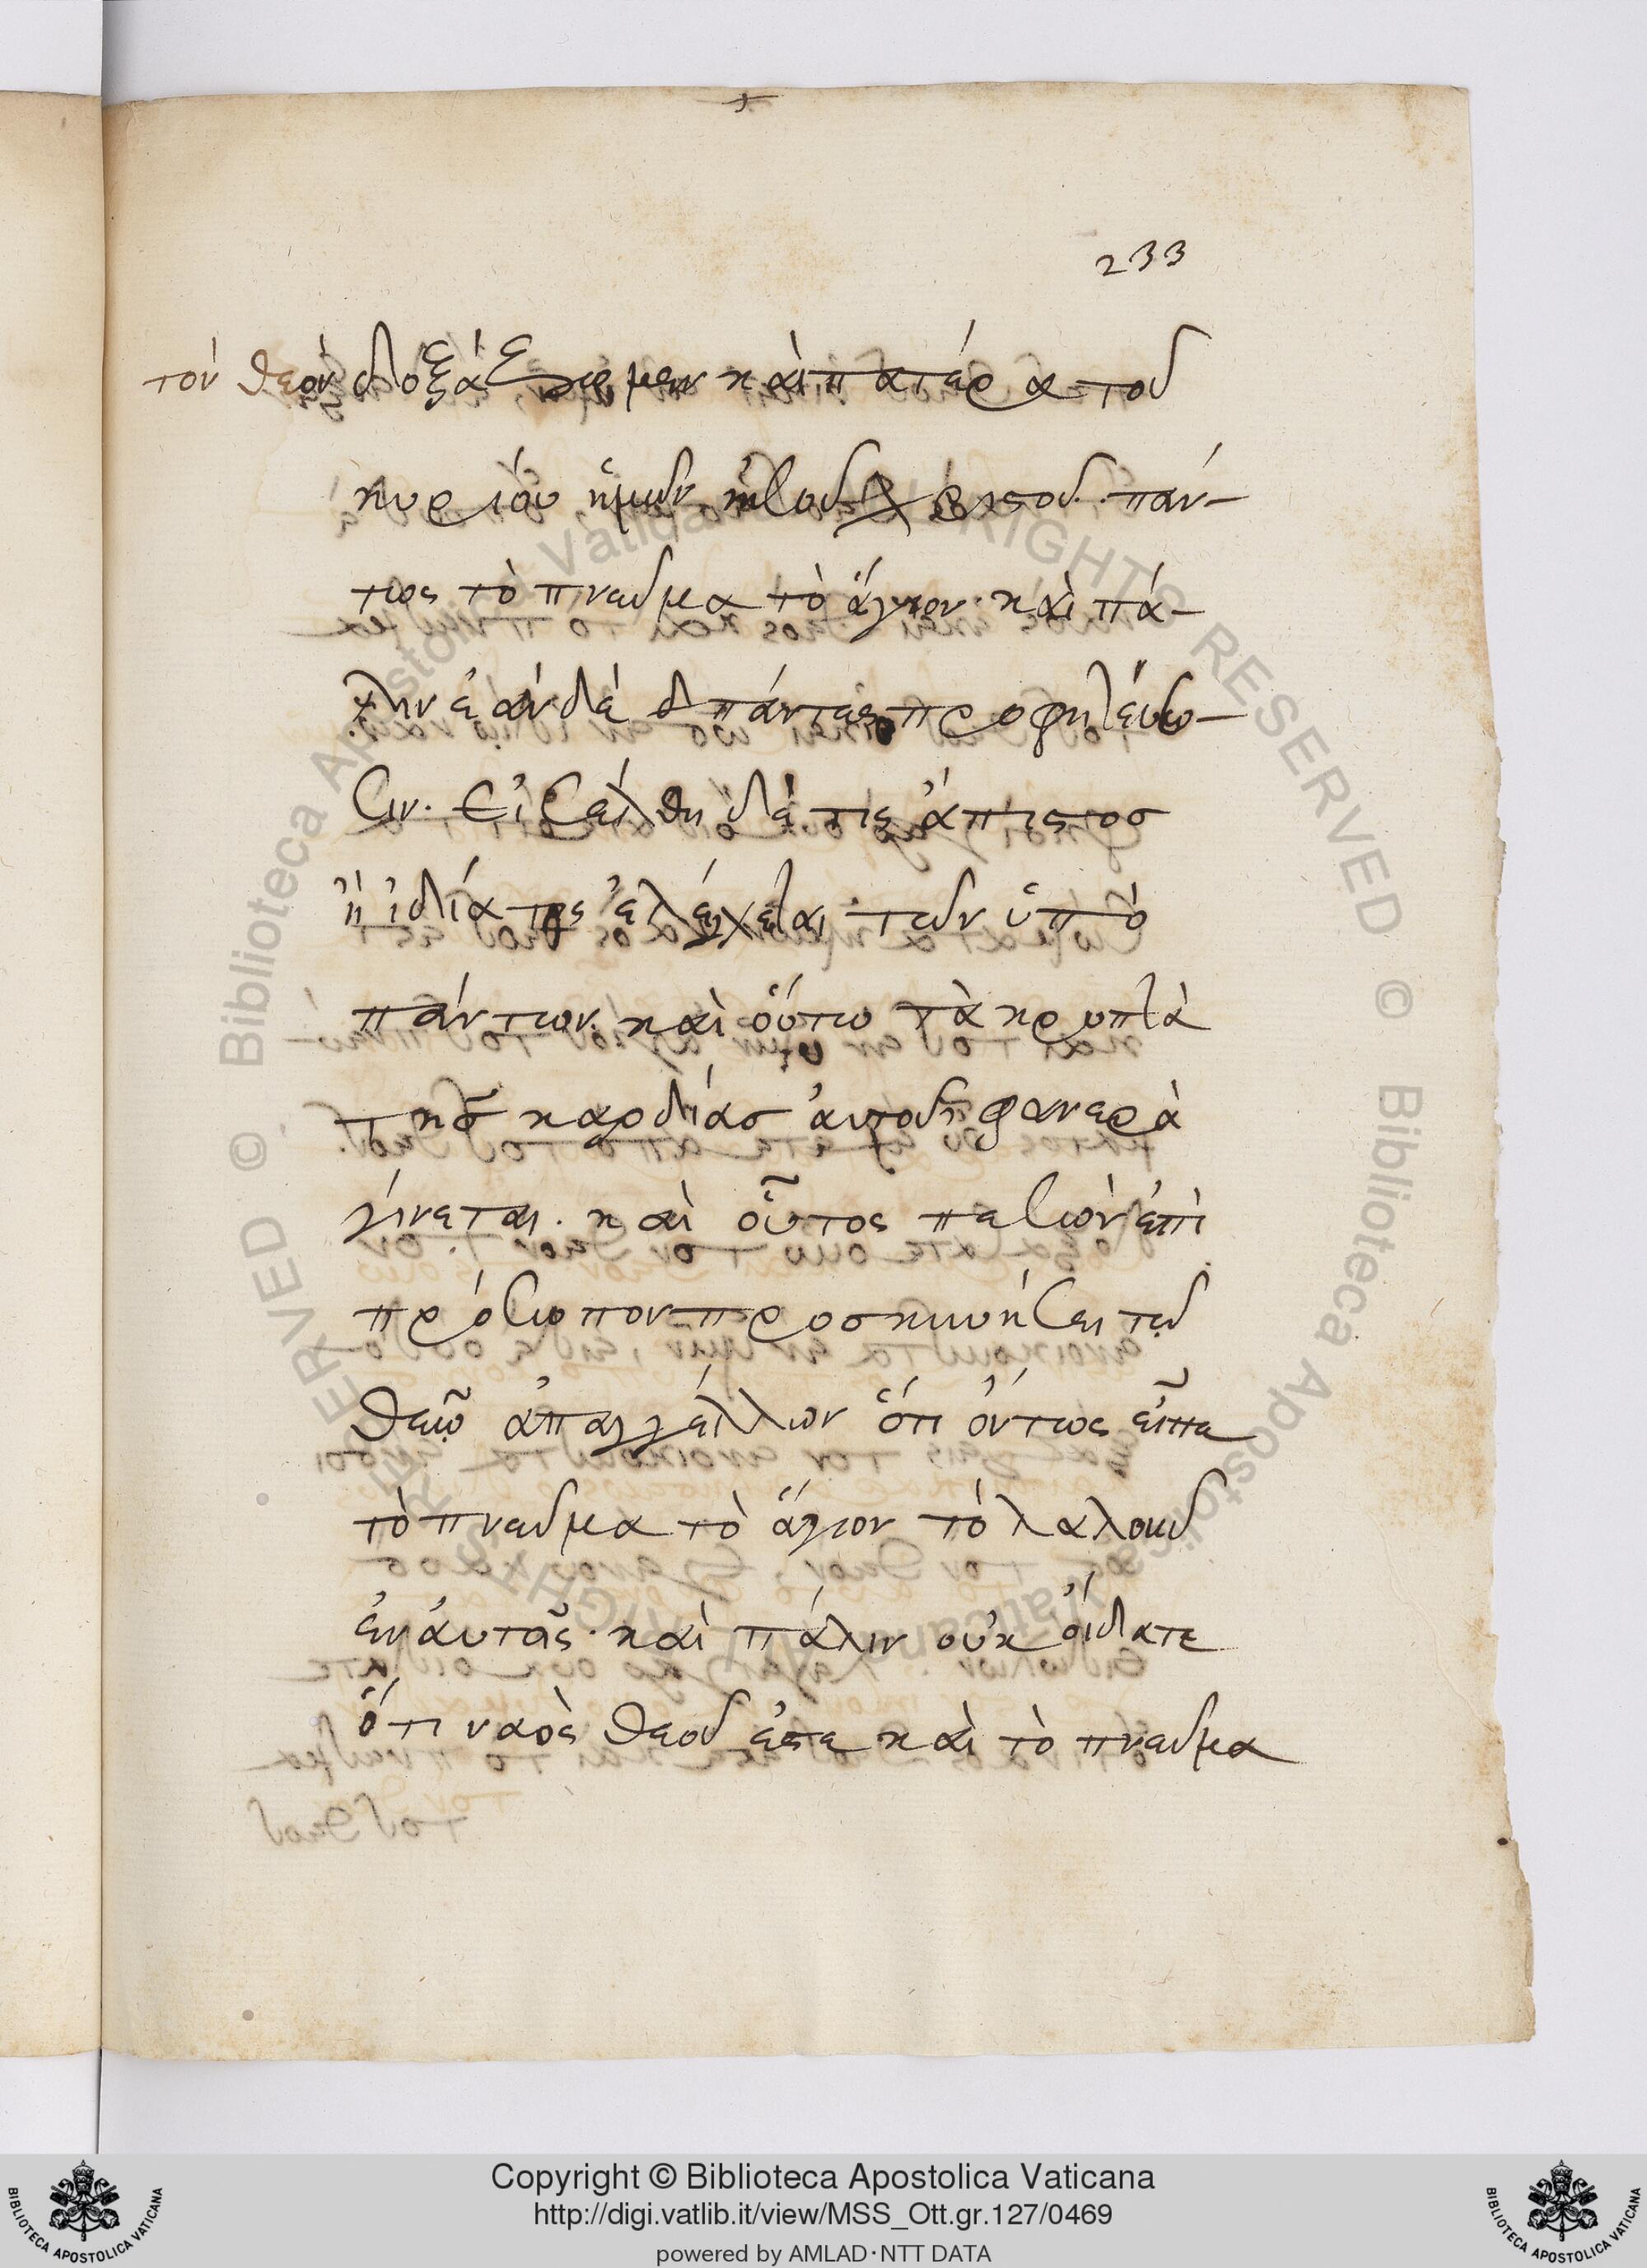 233
τὸν θεὸν δοξάζωμεν καὶ πατέρα τοῦ
κυρίου ἡμῶν ἰησοῦ χριστοῦ. πάν-
τως τὸ πνεῦμα τὸ ἅγιον. καὶ πά-
λιν ἐὰν δὲ πάντες προφητεύω-
σιν. εἰσέλθη δέ τις ἄπιστος
ἢ ἰδιώτης ἐλέγχεται τῶν ὑπὸ
πάντων. καὶ ὅυτω τὰ κρυπτὰ
τῆς καρδίας ἀυτοῦ φανερὰ
γίνεται. καὶ οὗτος πεσὼν ἐπὶ
πρόσωπον προσκυνήσει τῷ
θεῷ ἀπαγγέλλων ὅτι ὄντως εἶπε
τὸ πνεῦμα τὸ ἅγιον τὸ λαλοῦν
ἐν ἀυτοῖς. καὶ πάλιν οὐκ ὄιδατε
ὅτι ναὸς θεοῦ ἐστε καὶ τὸ πνεῦμα
τοῦ θεοῦ
Copyright © Biblioteca Apostolica Vaticana
http://digi.vatlib.it/view/MSS_Ott.gr.127/0469
powered by AMLAD·NTT DATA
BIBLIOTECA APOSTOLICA VATICANA
BIBLIOTECA APOSTOLICA VATICANA